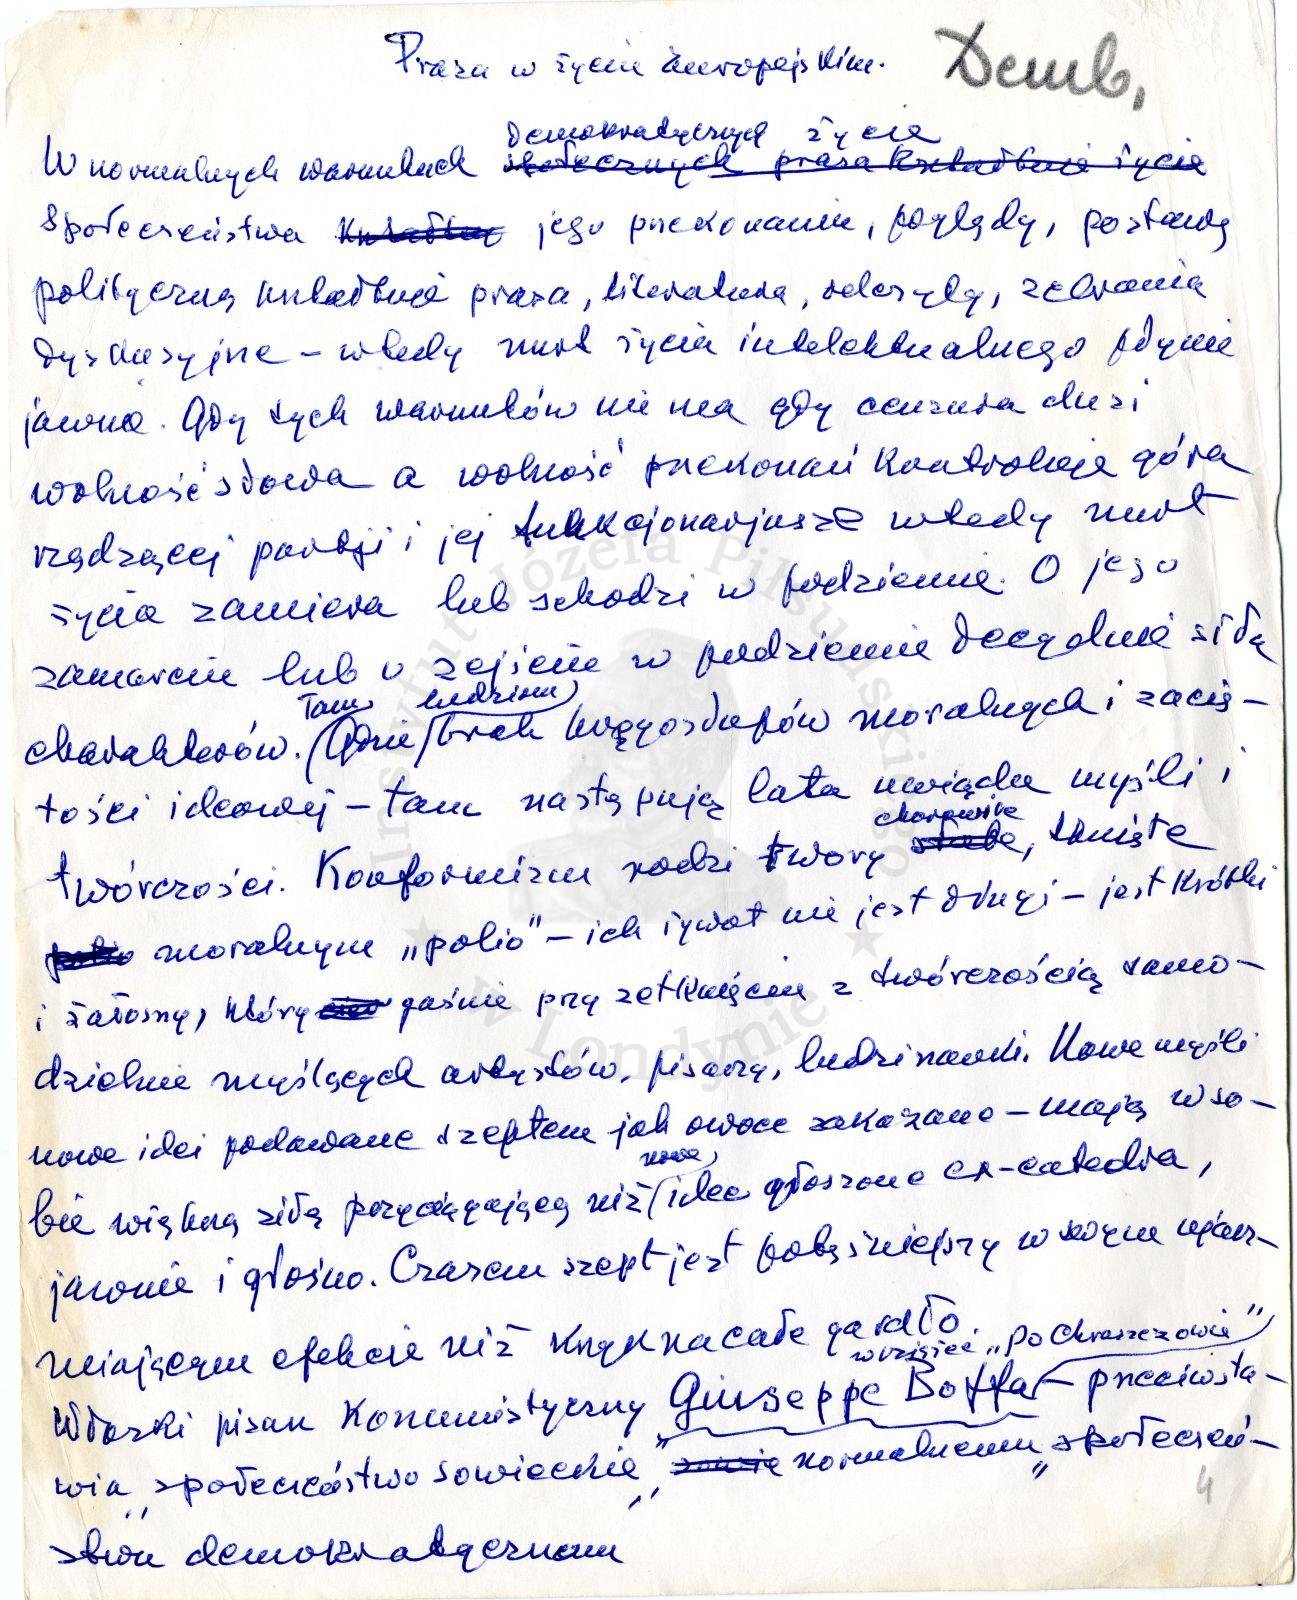 Prasa w życiu europejskim.
Demb,
demokratycznych życie
W normalnych warunkach społecznych prasa kształtuje życie
społeczeństwa kształtuje jego przekonania, poglądy, postawę
polityczną kształtuje prasa, literatura, odczyty, zebrania
dyskusyjne – wtedy nurt życia intelektualnego płynie
jawnie. Gdy tych warunków nie ma gdy cenzura dusi
wolność słowa a wolność przekonań kontroluje góra
rządzącej partji i jej funkcjonarjusze wtedy nurt
życia zamiera lub schodzi w podziemie. O jego
zamarciu lub o zejściu w podziemie decyduje siła
tam ludziom
charakterów. (Gdzie) brak kręgosłupów moralnych i zacię-
tości ideowej – tam następują lata uwiądu myśli i
chorowite
twórczości. Konformizm rodzi twory słabe, tknięte
polio moralnym „polio” – ich żywot nie jest długi – jest krótki
i żałosny, który gaśnie przy zetknięciu z twórczością samo-
dzielnie myślących artystów, pisarzy, ludzi nauki. Nowe myśli
nowe idei podawane szeptem jak owoce zakazane – mają w so-
nowe
bie większą siłę przyciągającą niż idee głoszone ex-catedra,
jawnie i głośno. Czasem szept jest potężniejszy w swym
miającym efekcie niż krzyk na całe gardło.
w książce „po Chruszczowie”
Włoski pisarz komunistyczny Giuseppe Boffa – przeciwsta-
wia „społeczeństwo sowieckie” „normalnemu” społeczeń-
stwu demokratycznemu
4
Instytut Józefa Piłsudskiego
w Londynie